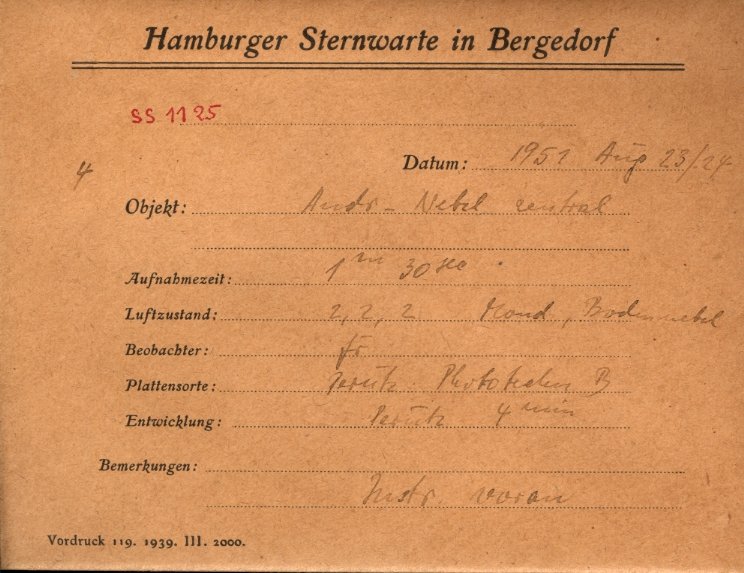 Hamburger Sternwarte in Bergedorf
SS 1125
4
Datum: 1951 Aug 23/24
Objekt: Andr-Nebel zentral
Aufnahmezeit: 1 m 30 sec
Luftzustand: 2, 2, 2 Mond, Bodennebel
Beobachter:
Plattensorte: Perutz
Entwicklung: Perutz 4 min
Bemerkungen:
Instr. voran
Vordruck 119. 1939. III. 2000.